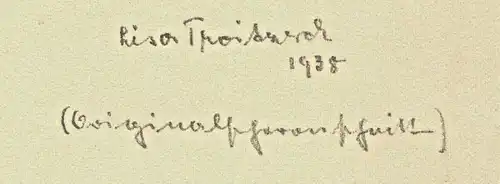 Lisa Troitzsch
1938
(Originalscherenschnitt)